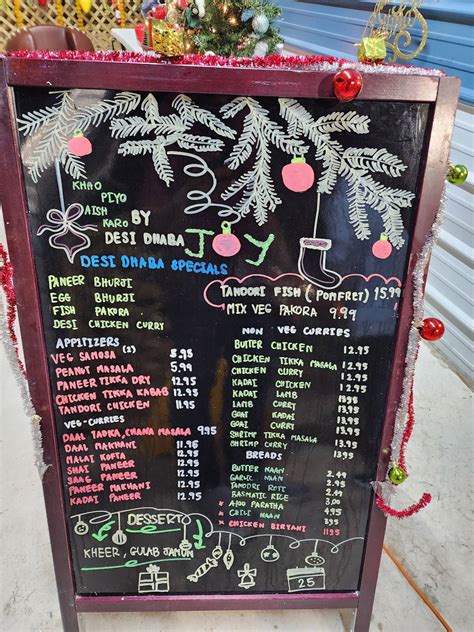 KHAO
PIYO
AISH
KARO BY
DESI DHABA
JOY
DESI DHABA SPECIALS
PANEER BHURJI
EGG BHURJI
FISH PAKORA
DESI CHICKEN CURRY
TANDORI FISH (POMFRET) 15.99
MIX VEG PAKORA 9.99
APPITIZERS
VEG SAMOSA (2)
PEANUT MASALA 5.99
PANEER TIKKA DRY 12.95
CHICKEN TIKKA KABAB 12.95
TANDORI CHICKEN 11.95
VEG-CURRIES
DAAL TADKA, CHANA MASALA 9.95
DAAL MAKHANI 11.95
MALAI KOFTA 12.95
SHAI PANEER 12.95
SAAG PANEER 12.95
PANEER MAKHANI 12.95
KADAI PANEER 12.95
NON VEG CURRIES
BUTTER CHICKEN 12.95
CHICKEN TIKKA MASALA 12.95
CHICKEN CURRY 12.95
KADAI CHICKEN 12.95
KADAI LAMB 13.95
LAMB CURRY 13.95
GOAT CURRY 13.95
KADAI GOAT 13.95
SHRIMP TIKKA MASALA 13.95
SHRIMP CURRY 13.95
BREADS
BUTTER NAAN
GARLIC NAAN
TANDORI ROTI
BASMATIC RICE
* ALOO PARATHA
* CHILI NAAN 3.95
* CHICKEN BIRYANI 11.95
DESSERT
KHEER, GULAB JAMUN
25